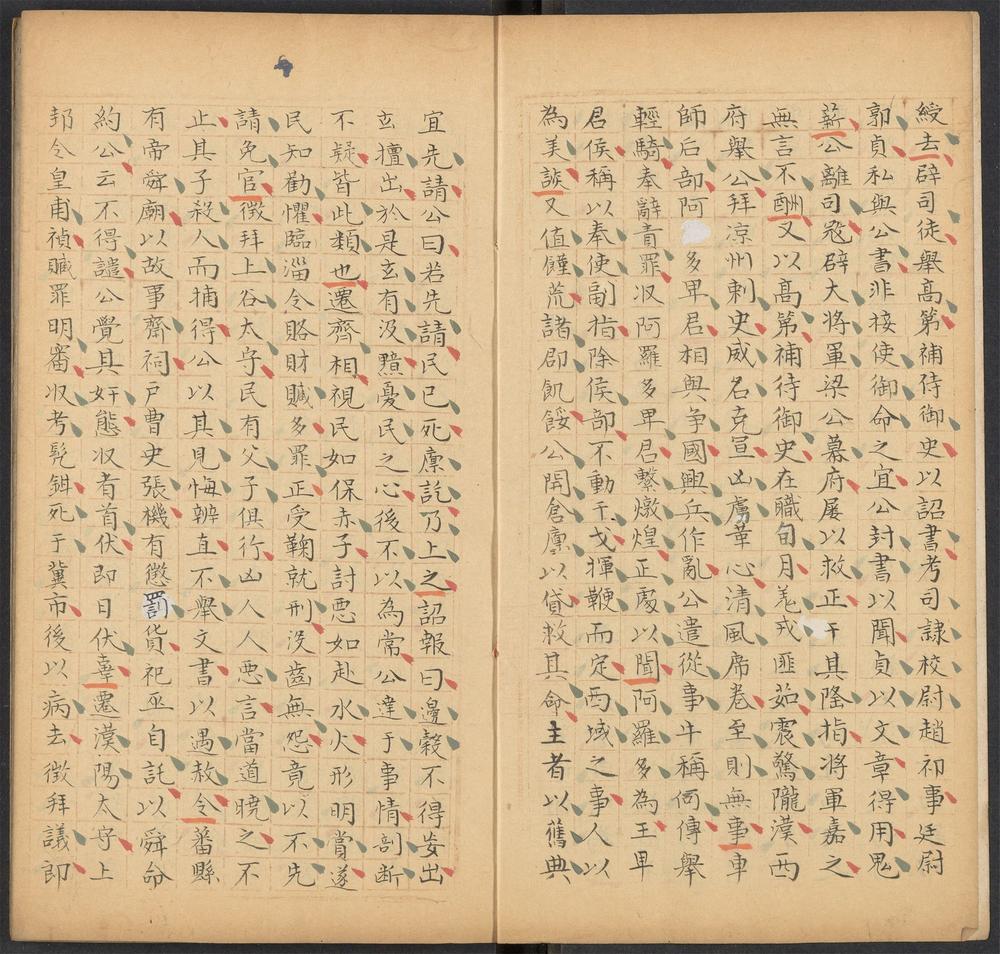 綬去辟司徒舉高第補侍御史以詔書考司隷校尉趙初事廷尉
郭貞私與公書非接使御命之宜公封書以聞貞以文章得用鬼
薪公離司寇辟大將軍梁公幕府屢以救正干其隆指將軍嘉之
無言不酬又以高第補待御史在職旬月羗戎匪茹震驚隴漢西
府舉公拜凉州刺史威名克宣凶虜革心清風席卷至則無事車
師后部阿多卑君相與争國興兵作亂公遣從事牛稱何傳舉
輕騎奉辭責罪収阿羅多卑君繫燉煌正處以聞阿羅多為王卑
君侯稱以奉使副指除侯部不動干戈揮鞭而定西域之事人以
為美談又值饉荒諸郡飢餒公開倉廩以貸救其命主者以舊典
宜先請公曰若先請民已死廪訖乃上之詔報曰邊穀不得妄出
玄擅出於是玄有汲黯憂民之心後不以為常公達于事情剖断
不疑皆此類也遷齊相視民如保赤子討惡如赴水火形明賞遂
民知勸懼臨淄令賂財贓多罪正受鞠就刑没齒無怨竟以不先
請免官徵拜上谷太守民有父子俱行凶人人惡言當道曉之不
止其子殺人而捕得公以其見悔辨直不舉文書以遇赦令番縣
有帝舜廟以故事齋祠户曹史張機有懲罰貨祀巫自託以舜命
約公云不得譴公覺其奸態収者首伏即日伏辜遷漢陽太守上
邽令皇甫禎贓罪明審収考髡鉗死于冀市後以病去徵拜議郎